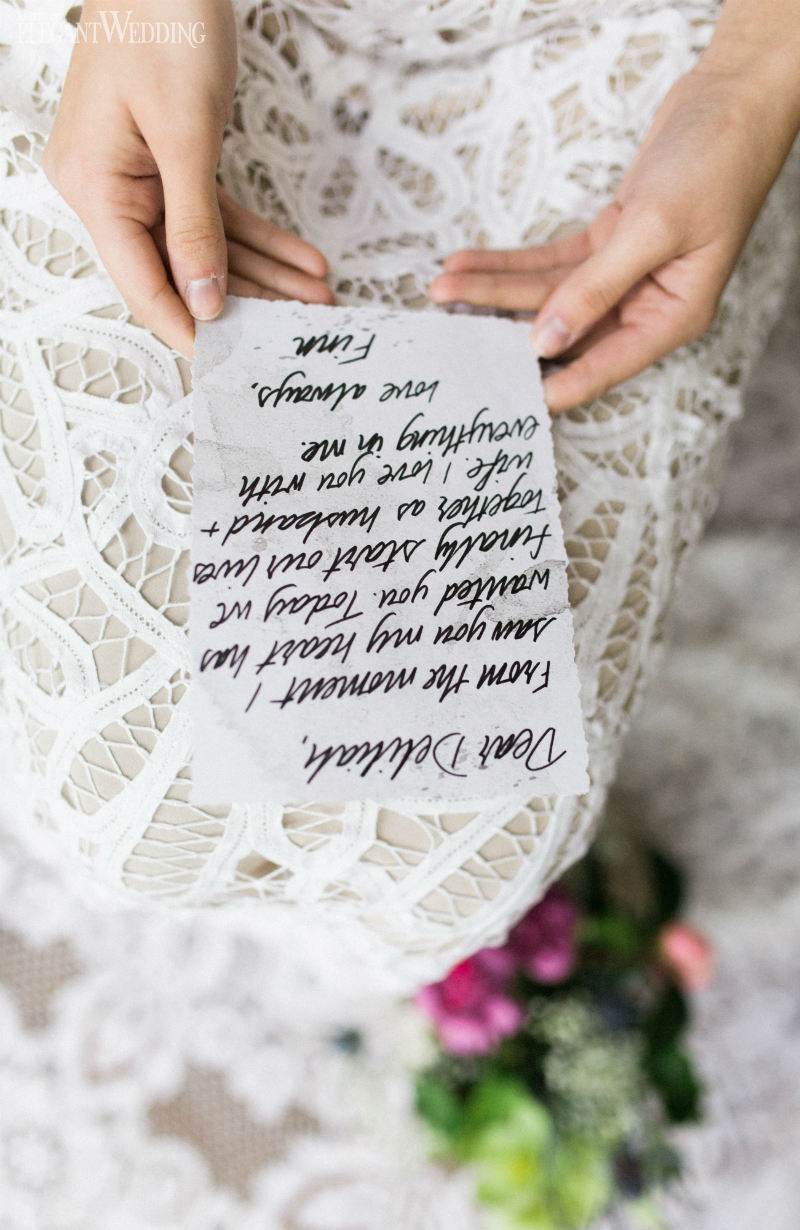 ELEGANTWEDDING
Dear Delilah,
From the moment I
saw you my heart has
wanted you. Today we
finally start our lives
together as husband +
wife. I love you with
everything in me.
love always,
Finn